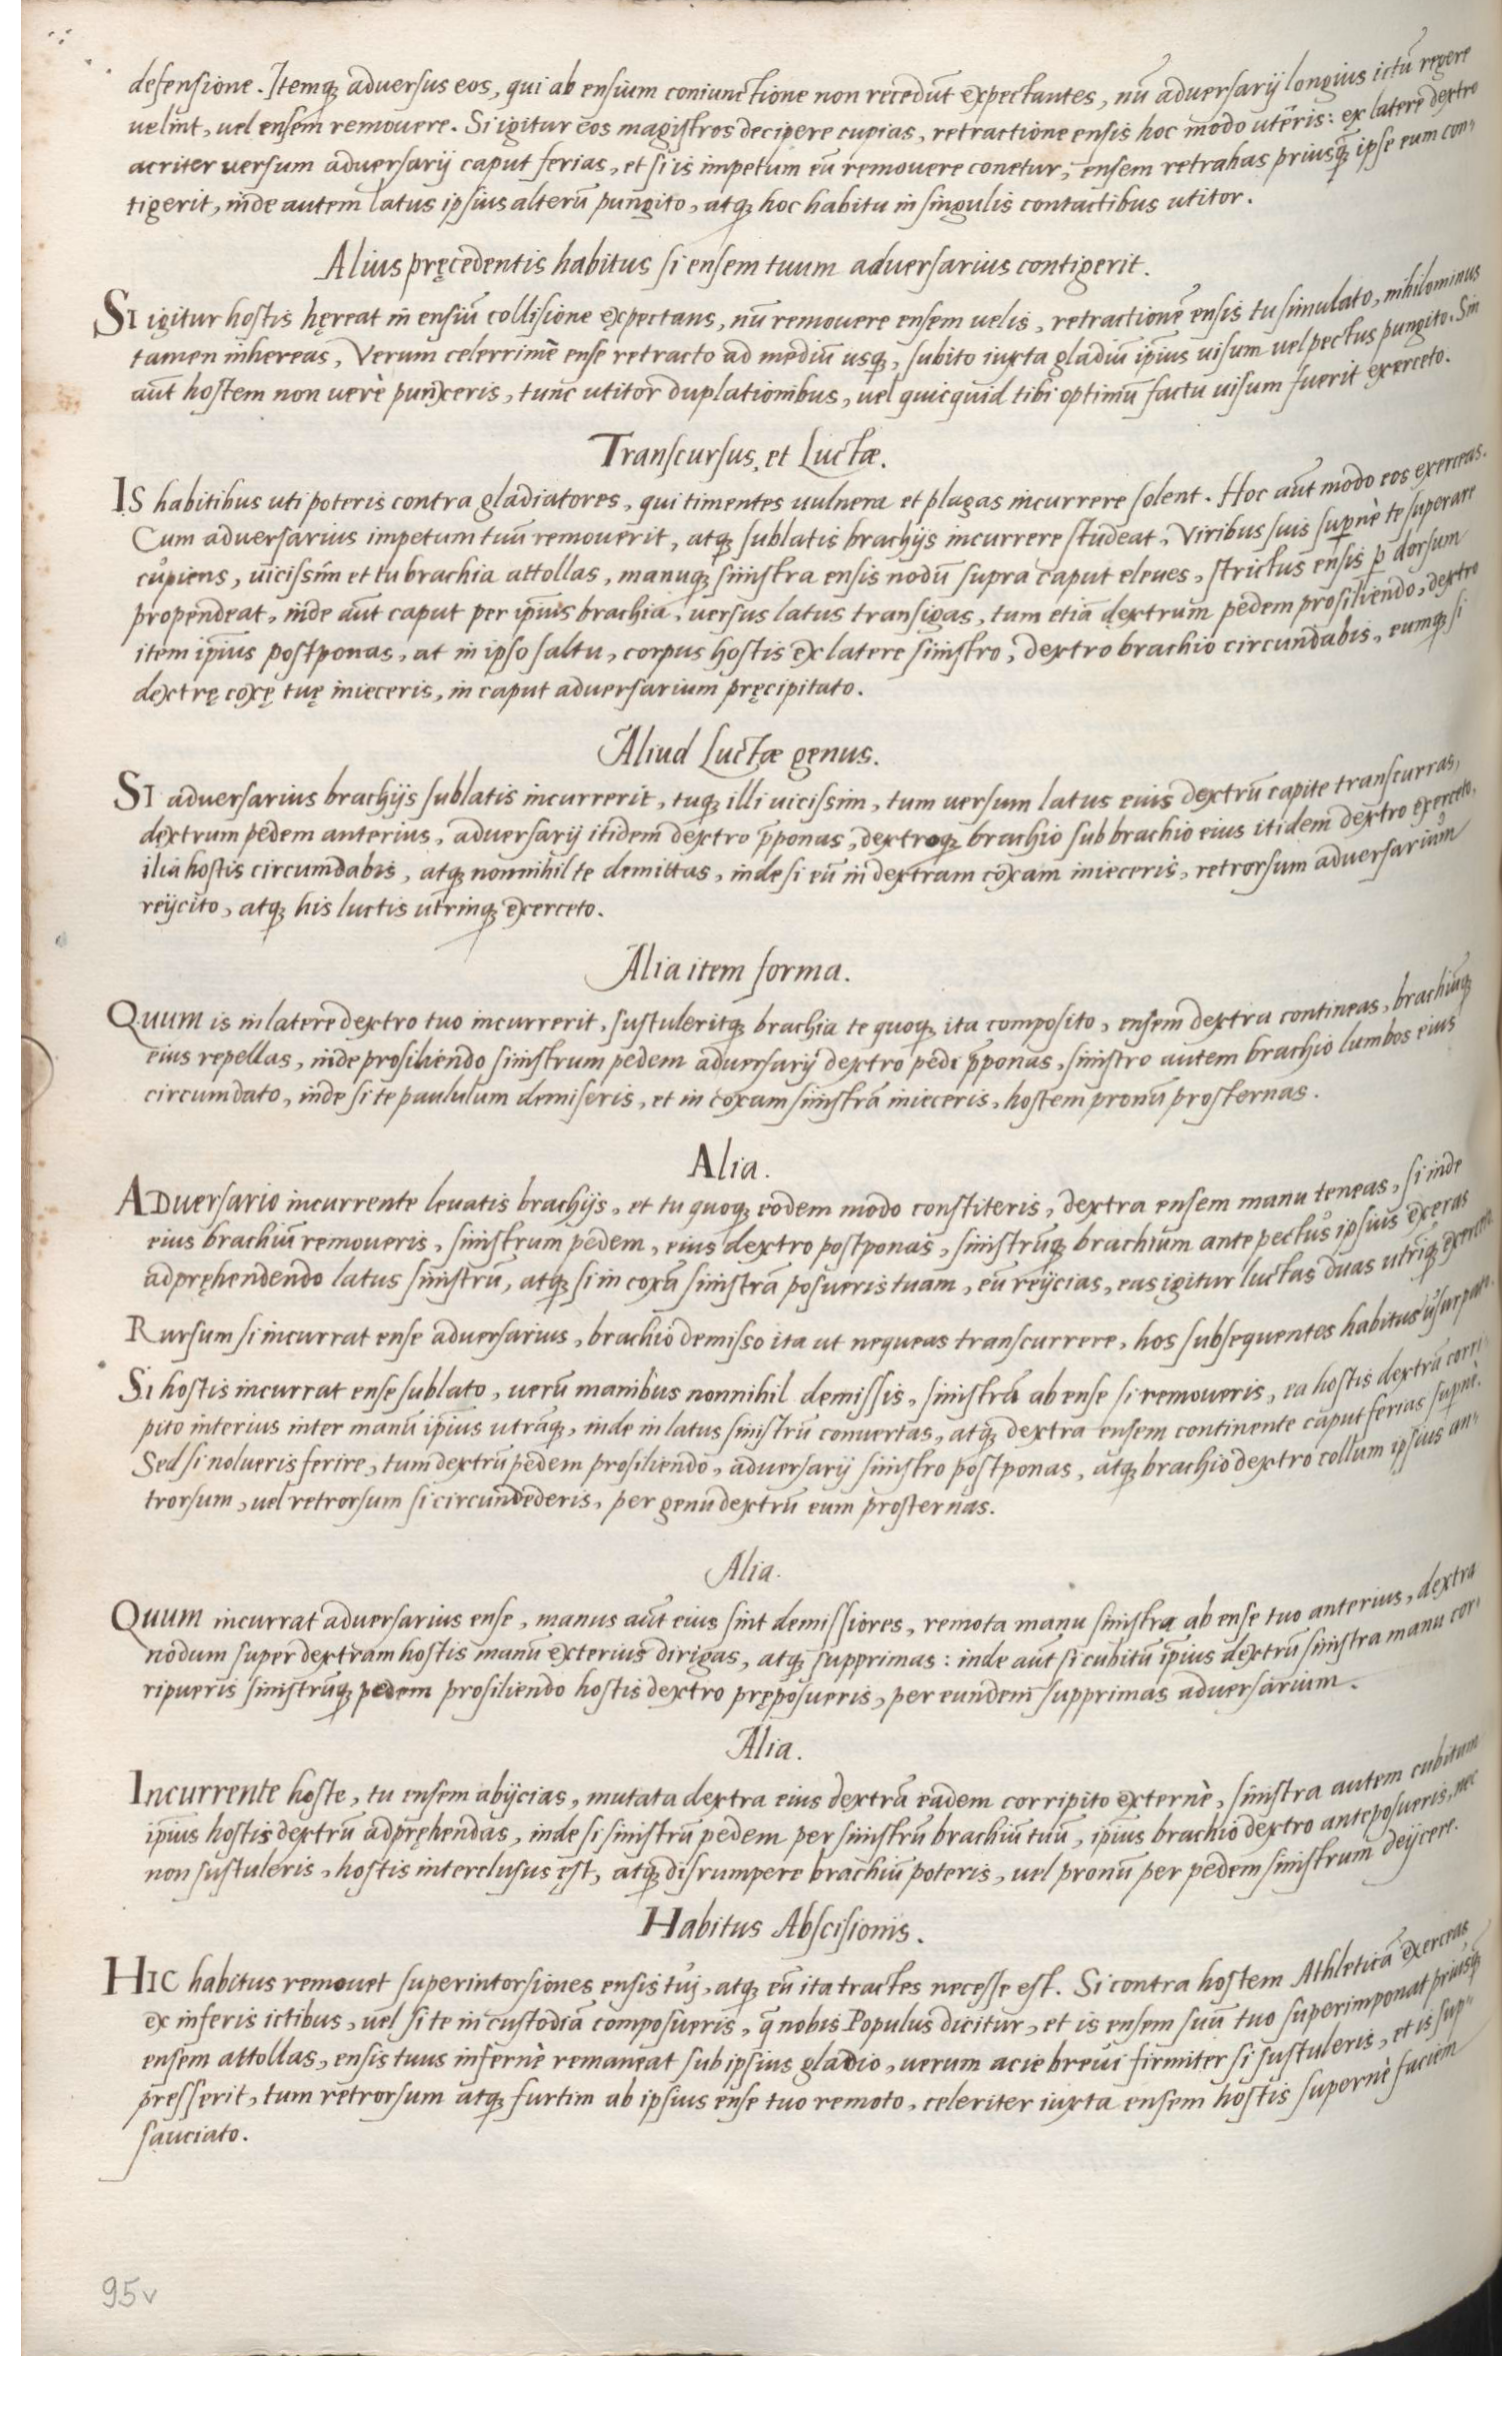 defensione. Itemq; adversus eos, qui ab ensium coniunctione non recedūt expectantes, nū adversarij longius ictū regere
uelint, uel ensem remouere. Si igitur eos magistros decipere cupias, retractione ensis hoc modo utēris: ex latere dextro
acriter versum adversarij caput ferias, et si is impetum eū remouere conetur, ensem retrahas priusq̄ ipse eum con-
tigerit, inde autem latus ipsius alterū pungito, atq; hoc habitu in singulis contactibus utitor.
Alius pręcedentis habitus si ensem tuum adversarius contigerit.
SI igitur hostis hęreat in ensiū collisione expectans, nū remouere ensem uelis, retractionē ensis tu simulato, nihilominus
tamen inhereas, Verum celerrimè ense retracto ad mediū usq;, subito iuxta gladiū ip̄ius uisum uel pectus pungito. Sin
aūt hostem non uerè punxceris, tunc utitor duplationibus, uel quicquid tibi optimū factu uisum fuerit exerceto.
Transcursus, et Luctæ.
IS habitibus uti poteris contra gladiatores, qui timentes uulnera et plagas incurrere solent. Hoc aūt modo eos exerceas.
Cum adversarius impetum tuū remouerit, atq; sublatis brachijs incurrere studeat, Viribus suis supernè te superare
cupiens, uicissim et tu brachia attollas, manuq; sinistra ensis nodū supra caput eleues, strictus ensis p̱ dorsum
propendeat, inde aūt caput per ip̄ius brachia, uersus latus transigas, tum etiā dextrum pedem prosiliendo, dextro
item ip̄ius postponas, at in ipso saltu, corpus hostis ex latere sinistro, dextro brachio circundabis, eumq; si
dextrę coxę tuę inieceris, in caput adversarium pręcipitato.
Aliud Luctæ genus.
SI adversarius brachijs sublatis incurrerit, tuq; illi uicissim, tum uersum latus eius dextrū capite transcurras,
dextrum pedem anterius, adversarij itidem dextro p̄ponas, dextroq; brachio sub brachio eius itidem dextro exerceto,
ilia hostis circumdabis, atq; nonnihil te demittas, inde si eū in dextram coxam inieceris, retrorsum adversariūm
reijcito, atq; his luctis utrinq; exerceto.
Alia item forma.
QUUM is in latere dextro tuo incurrerit, sustuleritq; brachia te quoq; ita composito, ensem dextra contineas, brachiūq;
eius repellas, inde prosiliendo sinistrum pedem adversarij dextro pedi p̄ponas, sinistro autem brachio lumbos eius
circumdato, inde si te paululum demiseris, et in coxam sinistrā inieceris, hostem pronū prosternas.
Alia.
ADversario incurrente leuatis brachijs, et tu quoq; eodem modo constiteris, dextra ensem manu teneas, si inde
eius brachiū remoueris, sinistrum pedem, eius dextro postponas, sinistrūq; brachium ante pectus ipsius exeras
adpręhendendo latus sinistrū, atq; si in coxā sinistrā posueris tuam, eū reijcias, eas igitur luctas duas utrīq; exerceto.
Rursum si incurrat ense adversarius, brachio demisso ita ut nequeas transcurrere, hos subsequentes habitus usurpato.
Si hostis incurrat ense sublato, uerū manibus nonnihil demissis, sinistrā ab ense si remoueris, ea hostis dextrā corri-
pito interius inter manū ip̄ius utrāq;, inde in latus sinistrū conuertas, atq; dextra ensem continente caput ferias supernè.
Sed si nolueris ferire, tum dextrū pedem prosiliendo, adversarij sinistro postponas, atq; brachio dextro collum ipsius an-
trorsum, uel retrorsum si circundederis, per genu dextrū eum prosternas.
Alia.
QUUM incurrat adversarius ense, manus aūt eius sint demissiores, remota manu sinistra ab ense tuo anterius, dextra
nodum super dextram hostis manū exterius dirigas, atq; supprimas: inde aūt si cubitū ip̄ius dextrū sinistra manu cor-
ripueris sinistrūq; pedem prosiliendo hostis dextro pręposueris, per eundem supprimas adversarium.
Alia.
Incurrente hoste, tu ensem abijcias, mutata dextra eius dextrā eadem corripito externè, sinistra autem cubitum
ip̄ius hostis dextrū adpręhendas, inde si sinistrū pedem per sinistrū brachiū tuū, ip̄ius brachio dextro anteposueris, nec
non sustuleris, hostis interclusus ęst, atq; disrumpere brachiū poteris, uel pronū per pedem sinistrum deijcere.
Habitus Abscisionis.
HIC habitus remouet superintorsiones ensis tuj, atq; eū ita tractes necesse est. Si contra hostem Athleticā exerceas
ex inferis ictibus, uel si te in custodiā composueris, q̄ nobis Populus dicitur, et is ensem suū tuo superimponat priusq̄
ensem attollas, ensis tuus infernè remaneat sub ipsius gladio, uerum acie breui firmiter si sustuleris, et is sup-
presserit, tum retrorsum atq; furtim ab ipsius ense tuo remoto, celeriter iuxta ensem hostis supernè faciem
sauciato.
95v